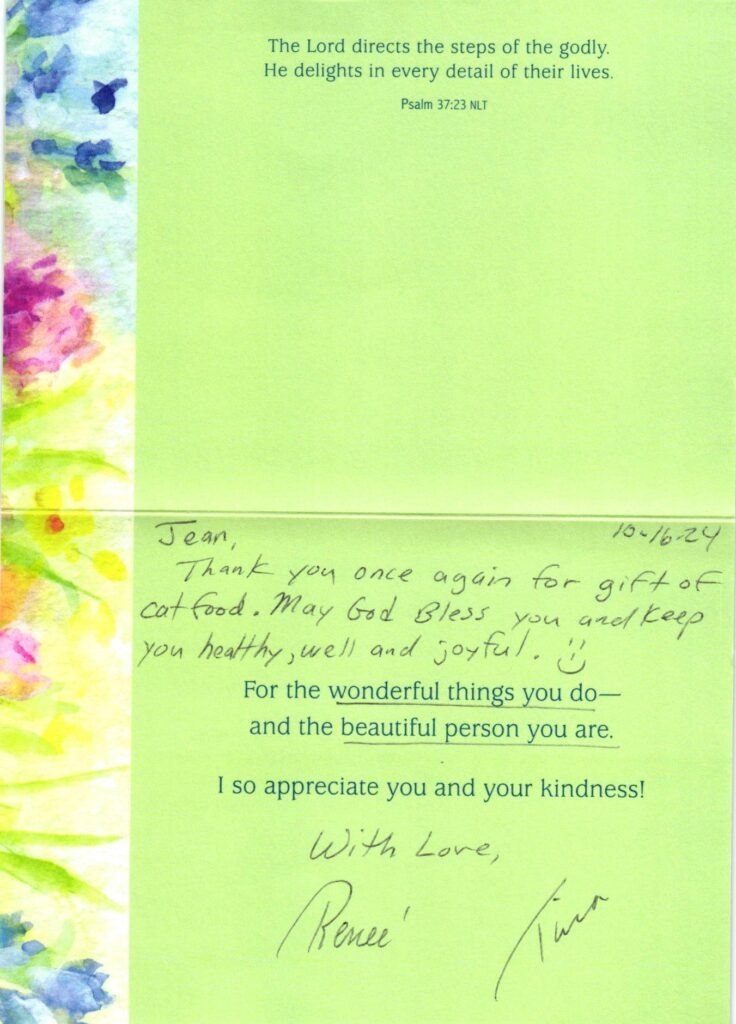 The Lord directs the steps of the godly.
He delights in every detail of their lives.
Psalm 37:23 NLT
Jean,
10-16-24
Thank you once again for gift of
cat food. May God Bless you and keep
you healthy, well and joyful. :)
For the wonderful things you do—
and the beautiful person you are.
I so appreciate you and your kindness!
With Love,
Renee'
Tina